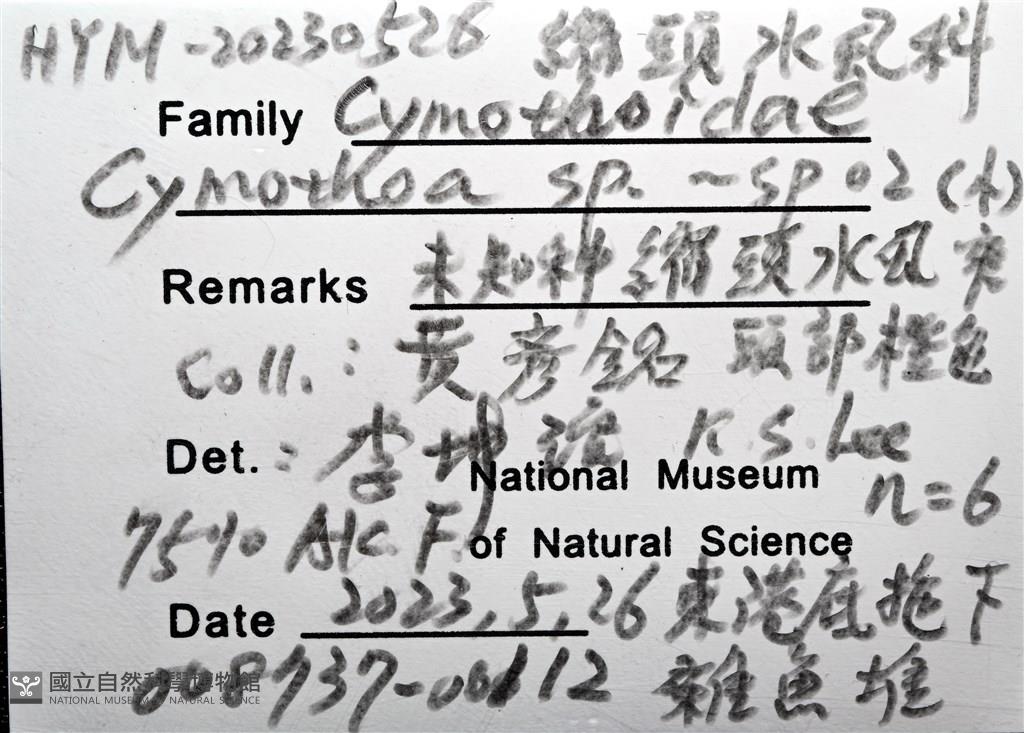 HYM-20230526 縮頭水虱科
Family Cymothoidae
Cymothoa sp. ~sp02(小)
Remarks 未知种縮頭水虱
Coll.: 黃彥銘 頭部橙色
Det.: 李坤瑄 K.S.Lee
National Museum n=6
75% Alc. F. of Natural Science
Date 2023.5.26 東港底拖下
雜魚堆
國立自然科學博物館
NATIONAL MUSEUM OF NATURAL SCIENCE